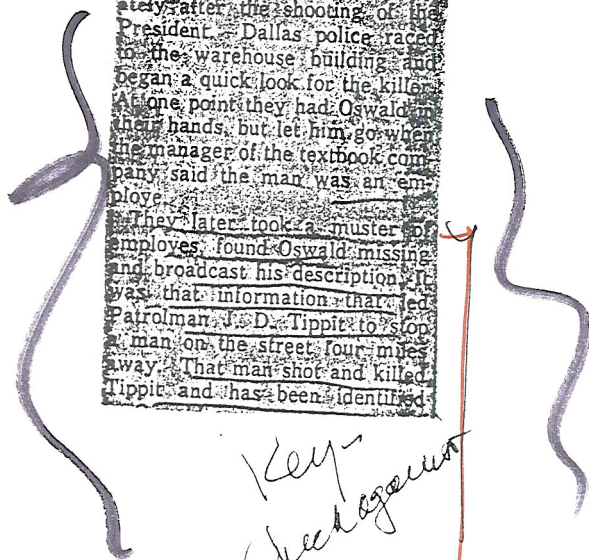 ately after the shooting of the
President. Dallas police raced
to the warehouse building and
began a quick look for the killer.
At one point they had Oswald in
their hands, but let him go when
the manager of the textbook com-
pany said the man was an em-
ploye.
They later took a muster of
employes, found Oswald missing
and broadcast his description. It
was that information that led
Patrolman J. D. Tippit to stop
a man on the street four miles
away. That man shot and killed
Tippit and has been identified
Key-
Check against